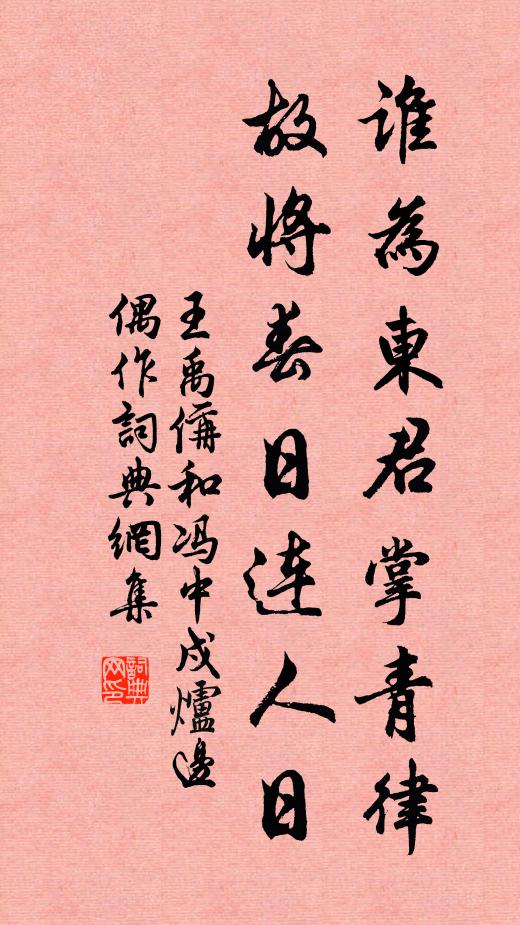 誰為東君掌青律
故將春日連人日
王禹偁和馮中戍爐邊
偶作詞典網集
詞典網印